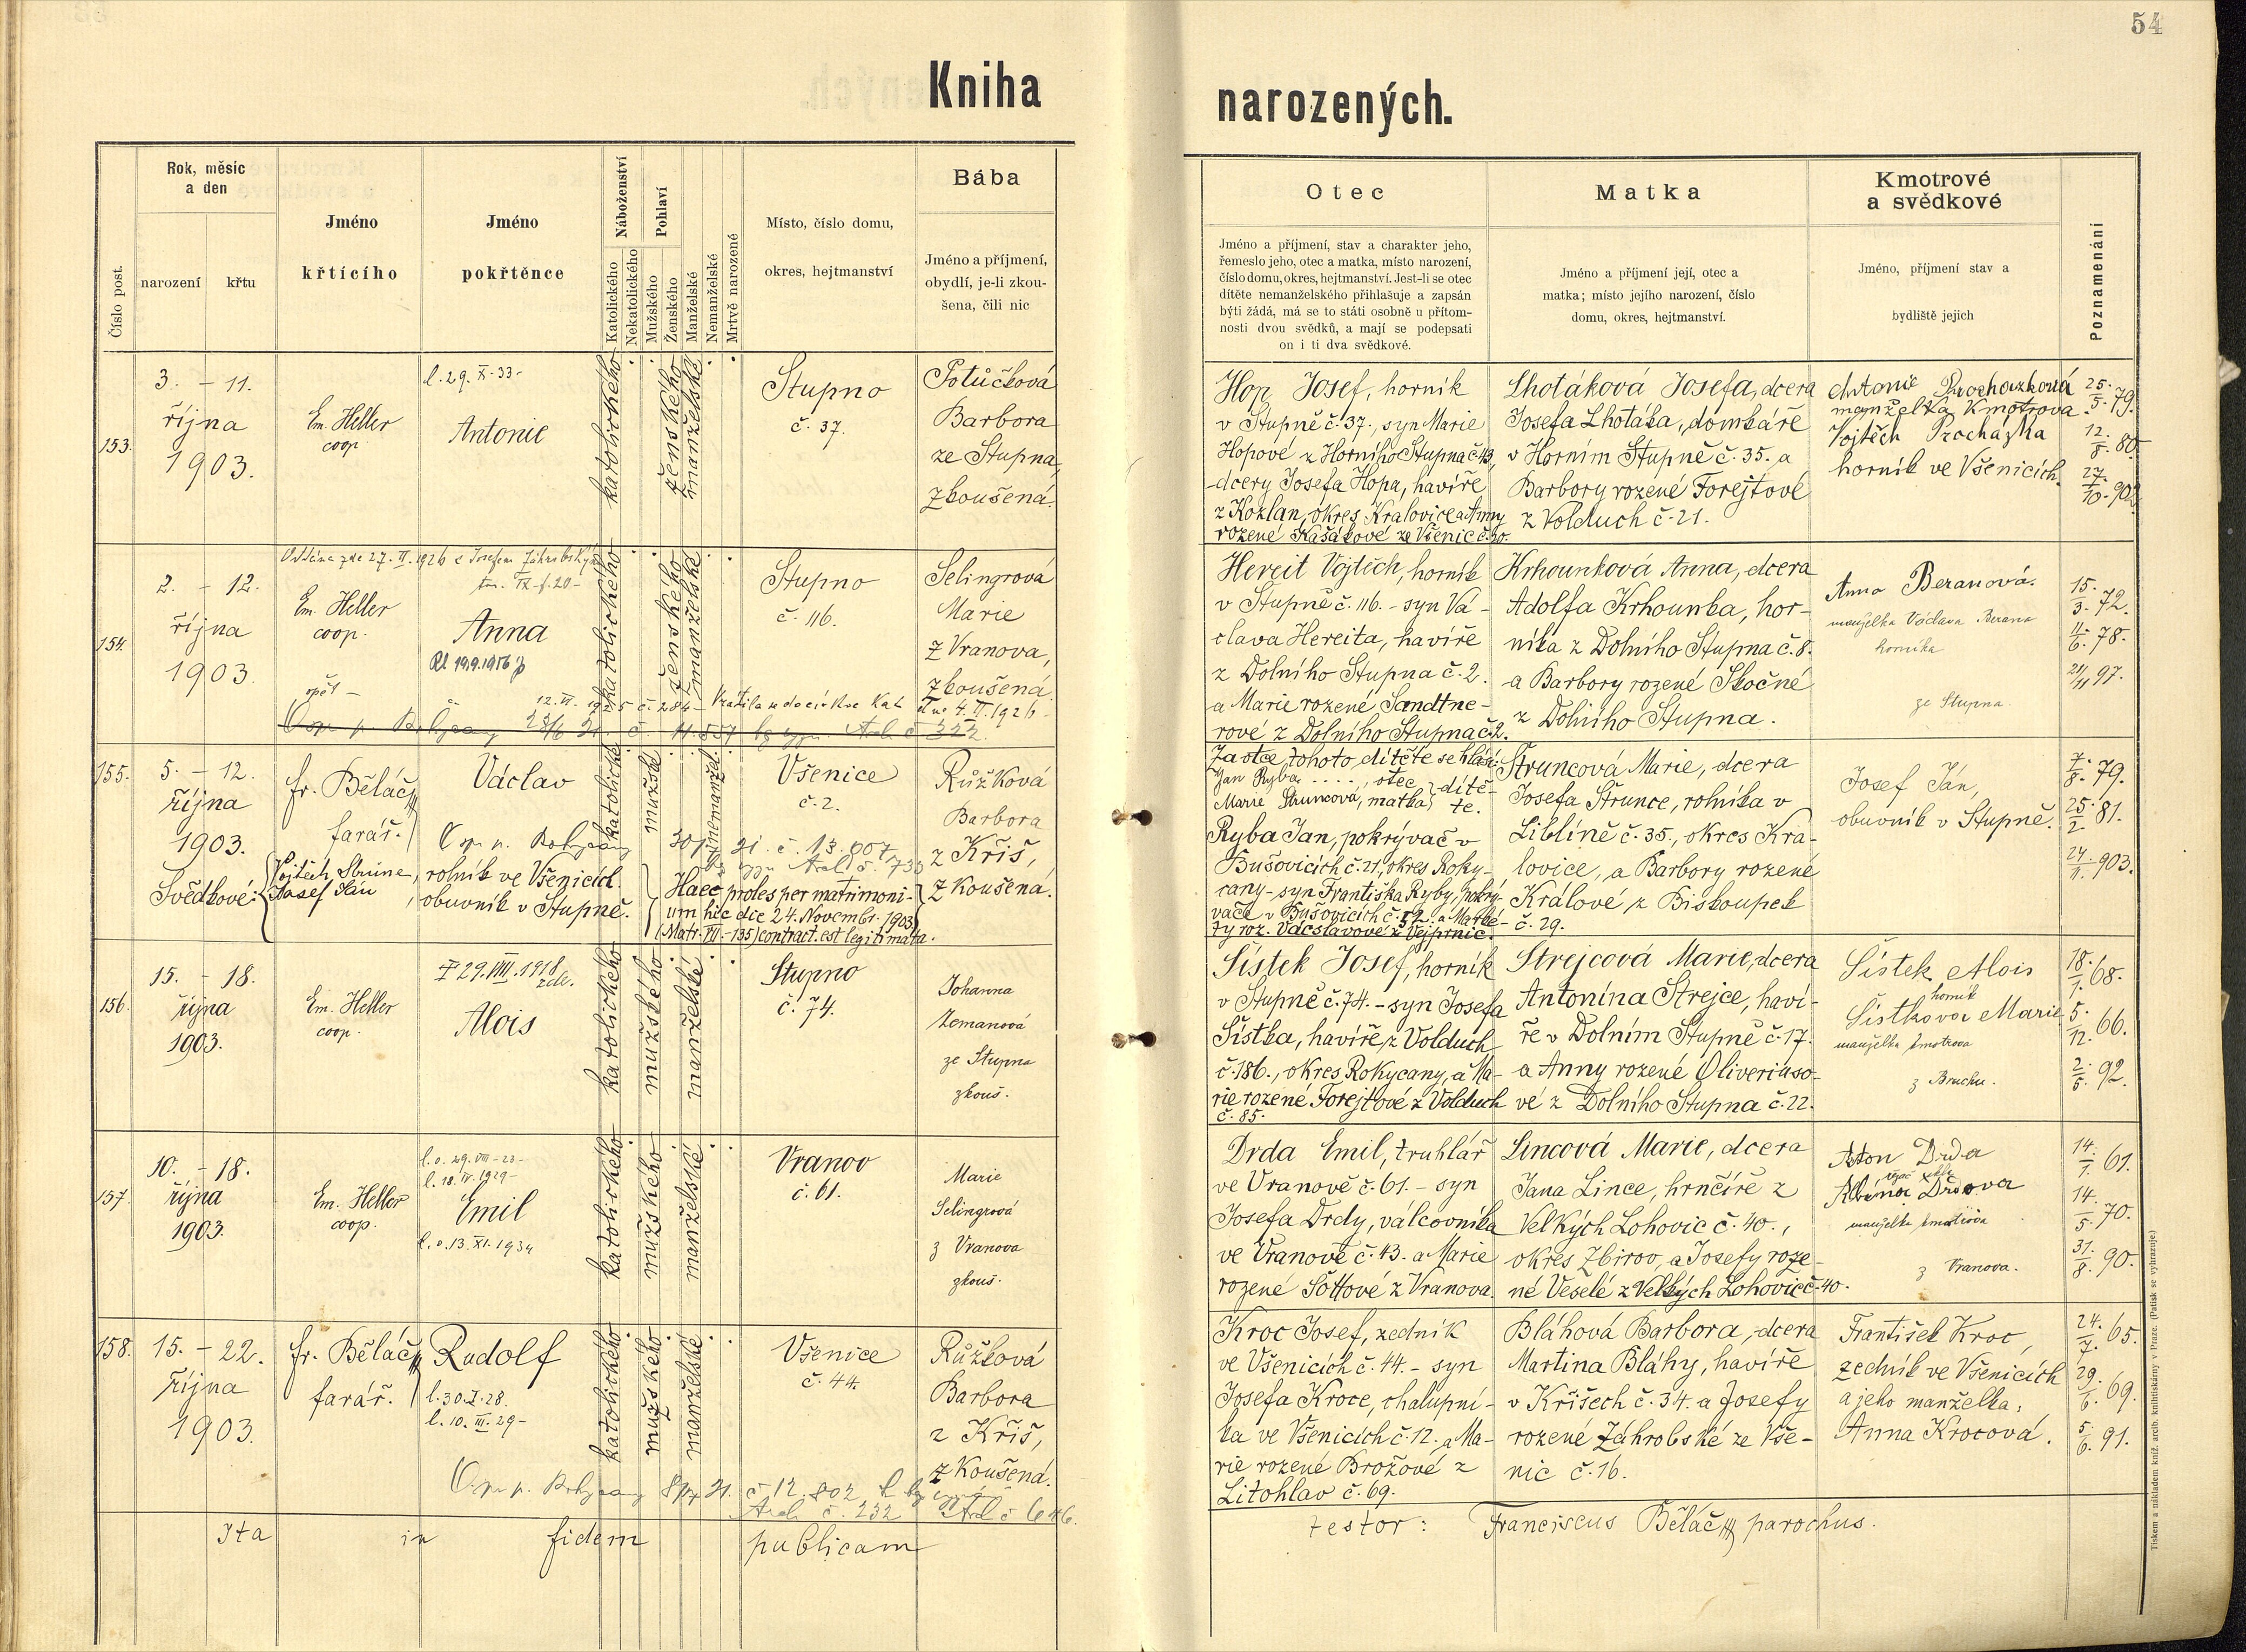 54
Kniha
narozených.
Číslo post.
Rok, měsíc
a den
narození
křtu
Jméno
křtícího
Jméno
pokřtěnce
Náboženství
Katolického
Nekatolického
Pohlaví
Mužského
Ženského
Manželské
Nemanželské
Mrtvě narozené
Místo, číslo domu,
okres, hejtmanství
Bába
Jméno a příjmení,
obydlí, je-li zkou-
šena, čili nic
Otec
Jméno a příjmení, stav a charakter jeho,
řemeslo jeho, otec a matka, místo narození,
číslo domu, okres, hejtmanství. Jest-li se otec
dítěte nemanželského přihlašuje a zapsán
býti žádá, má se to státi osobně u přítom-
nosti dvou svědků, a mají se podepsati
on i ti dva svědkové.
Matka
Jméno a příjmení její, otec a
matka; místo jejího narození, číslo
domu, okres, hejtmanství.
Kmotrové
a svědkové
Jméno, příjmení stav a
bydliště jejich
Poznamenání
153.
3. - 11.
října
1903.
Em. Heller
coop.
l. 29. X. 33-
Antonie
katolického
ženského
manželské
Stupno
č. 37.
Potůčková
Barbora
ze Stupna,
zkoušená.
Hop Josef, horník
v Stupně č. 37., syn Marie
Hopové z Horního Stupna č. 43,
dcery Josefa Hopa, havíře
z Kozlan, okres Kralovice a Anny
rozené Kašákové ze Všenic č. 30.
Lhotáková Josefa, dcera
Josefa Lhotáka, domkáře
v Horním Stupně č. 35. a
Barbory rozené Forejtové
z Volduch č. 21.
Antonie Procházková
manželka kmotrova
Vojtěch Procházka
horník ve Všenicích.
25./5. 79.
12./8. 80.
27./10. 902.
154.
2. - 12.
října
1903.
Em. Heller
coop.
27. II. 1926 s Josefem
Anna
19.9.1956
katolického
ženského
manželské
Stupno
č. 116.
Selingrová
Marie
z Vranova,
zkoušená
opět -
Vrátila se do církve kat. dne 4. II. 1926
Hereit Vojtěch, horník
v Stupně č. 116. - syn Vá-
clava Hereita, havíře
z Dolního Stupna č. 2.
a Marie rozené Sandtne-
rové z Dolního Stupna č. 2.
Krhounková Anna, dcera
Adolfa Krhounka, hor-
níka z Dolního Stupna č. 8.
a Barbory rozené Skočné
z Dolního Stupna.
Anna Beranová.
manželka Václava Berana
horníka
ze Stupna.
15./3. 72.
11./6. 78.
21/11 97.
155.
5. - 12.
října
1903.
fr. Běláč,
farář.
Václav
katolické
mužské
nemanžel.
Všenice
č. 2.
Růžková
Barbora
z Kříš,
zkoušená.
Svědkové:
Vojtěch Strunc, rolník ve Všenicích.
Josef Ján, obuvník v Stupně.
Haec proles per matrimoni-
um hic die 24. Novembr. 1903
(Matr. VII. - 135) contract. est legitimata.
Za otce tohoto dítěte se hlásí:
Jan Ryba ...., otec
Marie Struncová, matka
dítě-
te.
Ryba Jan, pokrývač v
Bušovicích č. 21, okres Roky-
cany - syn Františka Ryby, pokrý-
vače v Bušovicích č. 52. a Marké-
ty roz. Vácslavové z Vejprnic.
Struncová Marie, dcera
Josefa Strunce, rolníka v
Liblíně č. 35., okres Kra-
lovice, a Barbory rozené
Králové z Biskoupek
č. 29.
Josef Ján,
obuvník v Stupně.
7./8. 79.
25./2. 81.
24./1. 903.
156.
15. - 18.
října
1903.
Em. Heller
coop.
† 29. VIII. 1918
zde.
Alois
katolického
mužského
manželské
Stupno
č. 74.
Johanna
Zemanová
ze Stupna
zkouš.
Šístek Josef, horník
v Stupně č. 74. - syn Josefa
Šístka, havíře z Volduch
č. 186., okres Rokycany, a Ma-
rie rozené Forejtové z Volduch
č. 85.
Strejcová Marie, dcera
Antonína Strejce, haví-
ře v Dolním Stupně č. 17.
a Anny rozené Oliveriuso-
vé z Dolního Stupna č. 22.
Šístek Alois
horník
Šístková Marie
manželka kmotrova
z Bruchu.
18./1. 68.
5./12. 66.
2./5. 92.
157.
10. - 18.
října
1903.
Em. Heller
coop.
l. o. 29. VIII - 23 -
l. 18. IV. 1929 -
Emil
l. o. 13. XI. 1934
katolického
mužského
manželské
Vranov
č. 61.
Marie
Selingrová
z Vranova
zkouš.
Drda Emil, truhlář
ve Vranově č. 61. - syn
Josefa Drdy, válcovníka
ve Vranově č. 43. a Marie
rozené Šottové z Vranova.
Lincová Marie, dcera
Jana Lince, hrnčíře z
Velkých Lohovic č. 40.,
okres Zbirov, a Josefy roze-
né Veselé z Velkých Lohovic č. 40.
Anton Drda
Albína Drdova
manželka kmotrova
z Vranova.
14./1. 61.
14./5. 70.
31./8. 90.
158.
15. - 22.
října
1903.
fr. Běláč,
farář.
Rudolf
l. 30. I. 28.
l. 10. III. 29 -
katolického
mužského
manželské
Všenice
č. 44.
Růžková
Barbora
z Kříš,
zkoušená.
č 12.802
č. 232
č 646.
Kroc Josef, zedník
ve Všenicích č. 44. - syn
Josefa Kroce, chalupní-
ka ve Všenicích č. 12. a Ma-
rie rozené Brožové z
Litohlav č. 69.
Bláhová Barbora, dcera
Martina Bláhy, havíře
v Kříšech č. 34. a Josefy
rozené Záhrobské ze Vše-
nic č. 16.
František Kroc,
zedník ve Všenicích
a jeho manželka,
Anna Krocová.
24./7. 65.
29./1. 69.
5/6. 91.
Ita in fidem publicam
testor: Franciscus Běláč, parochus.
Tiskem a nákladem kníž. arcib. knihtiskárny v Praze. (Patisk se vyhrazuje.)